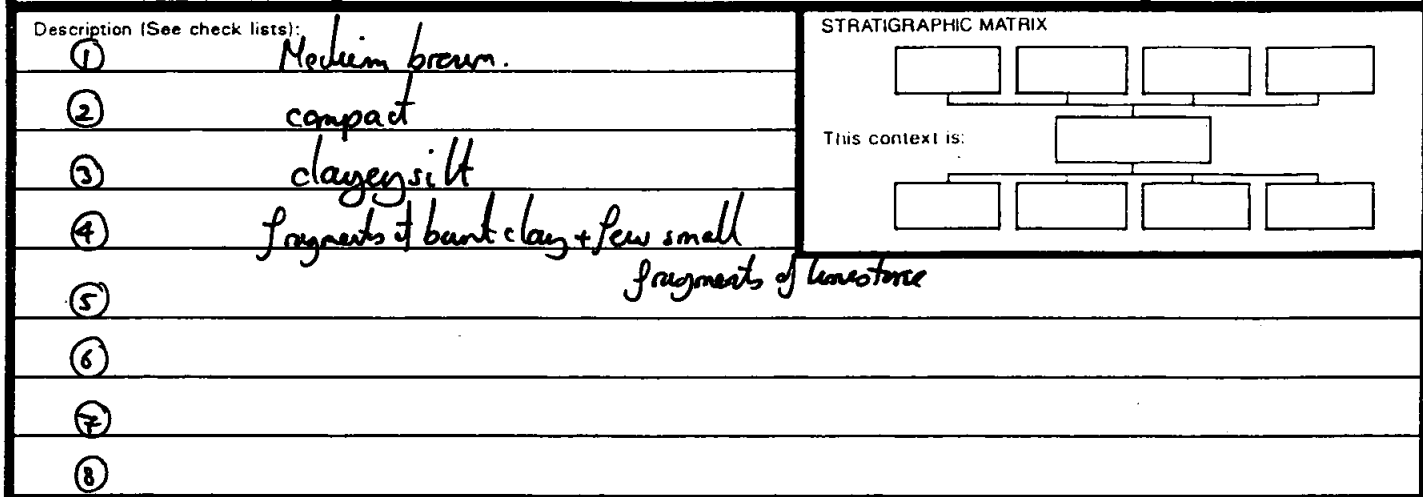 Description (See check lists):
① Medium brown.
② compact
③ clayey silt
④ fragments of burnt clay + few small
fragments of limestone
⑤
⑥
⑦
⑧
STRATIGRAPHIC MATRIX
This context is: